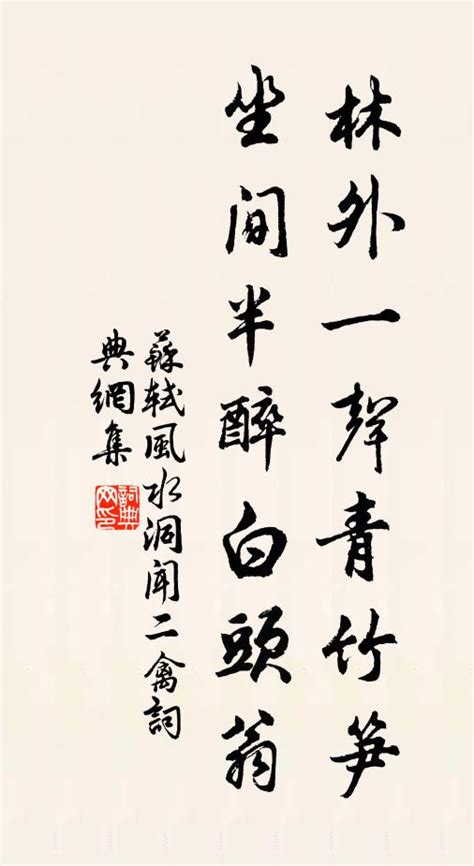 林外一聲青竹笋
坐間半醉白頭翁
蘇軾風水洞聞二禽詞
典網集
詞典網印